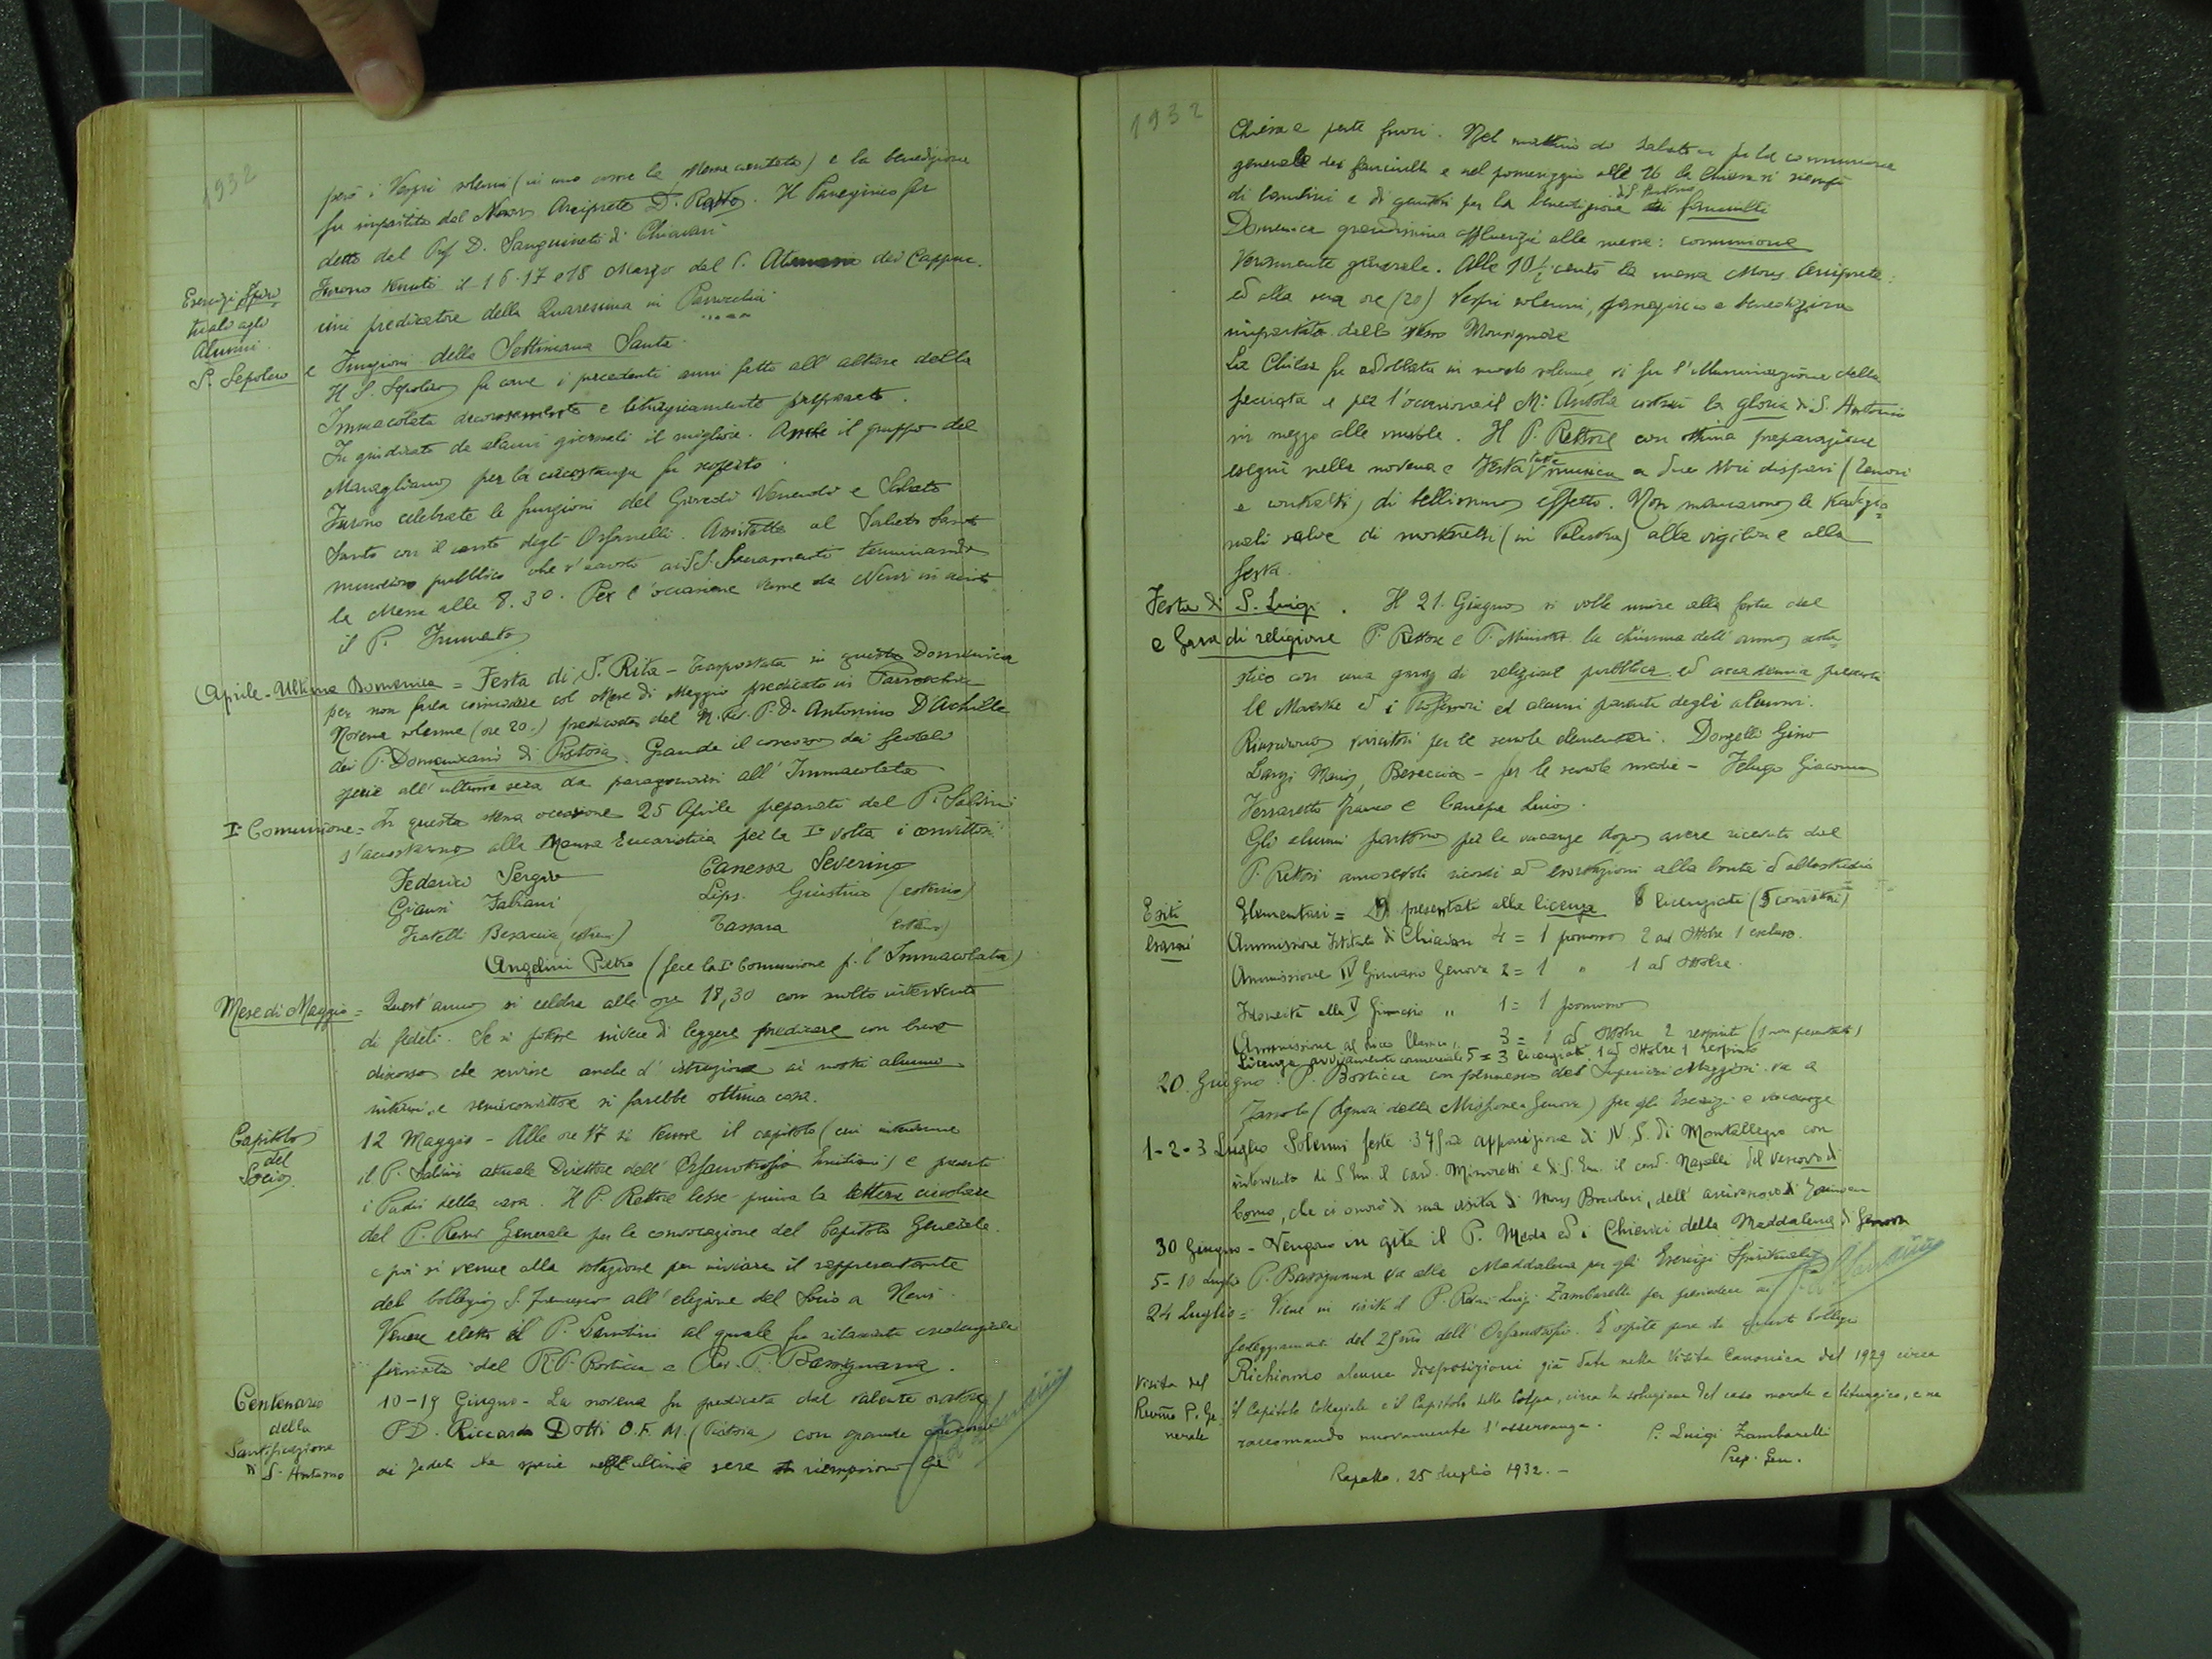 1932
però i Vespri solenni (in uno come la Messa cantata) e la benedizione
fu impartita dal Mons Arciprete D. Ratto. Il Panegirico fu
detto dal Prof D. Sanguineti di Chiavari
Esercizi Spiri
tuali agli
Alunni
Furono tenuti il 16-17 e 18 Marzo dal P. dei Cappuc.
cini predicatore della Quaresima in Parrocchia
S. Sepolcro e Funzioni della Settimana Santa
Il S. Sepolcro fu come i precedenti anni fatto all'altare della
Immacolata decorosamente e liturgicamente preparato.
Fu giudicato da alcuni giornali il migliore. Anche il gruppo del
Maragliano per la circostanza fu scoperto.
Furono celebrate le funzioni del Giovedì Venerdì e Sabato
Santo con il canto degli Orfanelli. Assistette al Sabato Santo
numeroso pubblico che s'accostò ai SS. Sacramenti terminando
la Messa alle 8.30. Per l'occasione venne da Nervi in aiuto
il P.
Aprile - Ultima Domenica = Festa di S. Rita - Trasportata in questa Domenica
per non farla coincidere col Mese di Maggio predicato in Parrocchia
Novena solenne (ore 20.) predicata dal M. Rev. P. D. Antonino D'Achille
dei P. Domenicani di Pistoia. Grande il concorso dei fedeli
specie all'ultima sera da paragonarsi all'Immacolata
Iª Comunione = In questa stessa occasione 25 Aprile preparati dal P. Salvini
s'accostarono alla Mensa Eucaristica per la Iª volta i convittori
Federici Sergio Canessa Severino
Gianni Fabiani Lips. Giustino (esterno)
Fratelli Besaccia (esterni) Tassara (esterno)
Angelini Pietro (fece la Iª Comunione p. l'Immacolata)
Mese di Maggio = Quest'anno si celebra alle ore 18,30 con molto intervento
di fedeli. Se si potesse invece di leggere predicare con breve
discorso che servisse anche d'istruzione ai nostri alunni
interni e semiconvittori si farebbe ottima cosa.
Capitolo
del
Socio
12 Maggio - Alle ore 17 si tenne il capitolo (cui intervenne
il P. Salvini attuale Direttore dell'Orfanotrofio Emiliani) e presenti
i Padri della casa. Il P. Rettore lesse prima la lettera circolare
del P. Rev.mo Generale per la convocazione del Capitolo Generale.
e poi si venne alla votazione per inviare il rappresentante
del Collegio S. Francesco all'elezione del Socio a Nervi.
Venne eletto il P. Lentini al quale fu rilasciata credenziale
firmata dal R. P. Borticca e Rev. P. Bassignana.
Centenario
della
Santificazione
di S. Antonio
10-19 Giugno - La novena fu predicata dal valente oratore
P. D. Riccardo Dotti O.F.M. (Pistoia) con grande concorso
di fedeli che specie nelle ultime sere riempirono la
1932
Chiesa e parte fuori. Nel mattino di Sabato fu la comunione
generale dei fanciulli e nel pomeriggio alle 16 la Chiesa si riempì
di bambini e di genitori per la benedizione di S. Antonio dei fanciulli
Domenica grandissima affluenza alle messe: comunione
veramente generale. Alle 10½ cantò la messa Mons Arciprete
ed alla sera ore (20) Vespri solenni, panegirico e benedizione
impartita dallo stesso Monsignore
La Chiesa fu addobbata in modo solenne, vi fu l'illuminazione della
facciata e per l'occasione il M. Antola costruì la gloria di S. Antonio
in mezzo alle nubi. Il P. Rettore con ottima preparazione
eseguì nella novena e Festa tutta musica a due voci dispari (Tenori
e contralti) di bellissimo effetto. Non mancarono le tradizio=
nali salve di mortaretti (in Palestra) alla vigilia e alla
festa.
Festa di S. Luigi. Il 21. Giugno si volle unire alla festa del
e Gara di religione P. Rettore e P. Ministro la chiusura dell'anno scola=
stico con una gara di religione pubblica ed accademia presenti
le Maestre ed i Professori ed alcuni parenti degli alunni.
Riuscirono vincitori per le scuole elementari. Donzelli Gino
Lanzi Mario, Besaccia - per le scuole medie - Felugo Giacomo
Ferraretto Franco e Canepa Luigi.
Gli alunni partono per le vacanze dopo avere ricevuto dal
P. Rettore amorevoli ricordi ed esortazioni alla bontà ed allo studio
Esiti
Esami
Elementari = presentati alla licenza 8 licenziati (5 convittori)
Ammissione Istituto di Chiavari 4 = 1 promosso 2 ad Ottobre 1 escluso.
Ammissione IV Ginnasio Genova 2 = 1 " 1 ad Ottobre.
Idoneità alla V Ginnasio " 1 = 1 promosso
Ammissione al Liceo Classico " 3 = 1 ad Ottobre 2 respinti (1 non presentato)
Licenza avviamento commerciale 5 = 3 licenziati, 1 ad Ottobre 1 respinto
20. Giugno. P. Borticca con permesso dei Superiori Maggiori va a
Fassolo (Signori della Missione a Genova) per gli Esercizi e vacanze
1-2-3 Luglio Solenni feste 375ma apparizione di N. S. di Montallegro con
intervento di S. Em. il card. Minoretti e di S. Em. il card. Nasalli del Vescovo di
Como, che ci onorò di sua visita di Mons
30 Giugno - Vengono in gita il P. Meda ed i Chierici della Maddalena di Genova
5-10 Luglio P. Bassignana va alla Maddalena per gli Esercizi Spirituali
24 Luglio = Viene in visita il P. Rev.mo Luigi Zambarelli per presiedere ai
festeggiamenti del 25mo dell'Orfanotrofio. È ospite pure di questo Collegio
Visita del
Rev.mo P. Ge
nerale
Richiamo alcune disposizioni già date nella Visita Canonica del 1929 circa
il Capitolo Collegiale e il Capitolo della Colpa, circa la soluzione del caso morale e liturgico, e ne
raccomando nuovamente l'osservanza.
P. Luigi Zambarelli
Prep. Gen.
Rapallo, 25 luglio 1932. -